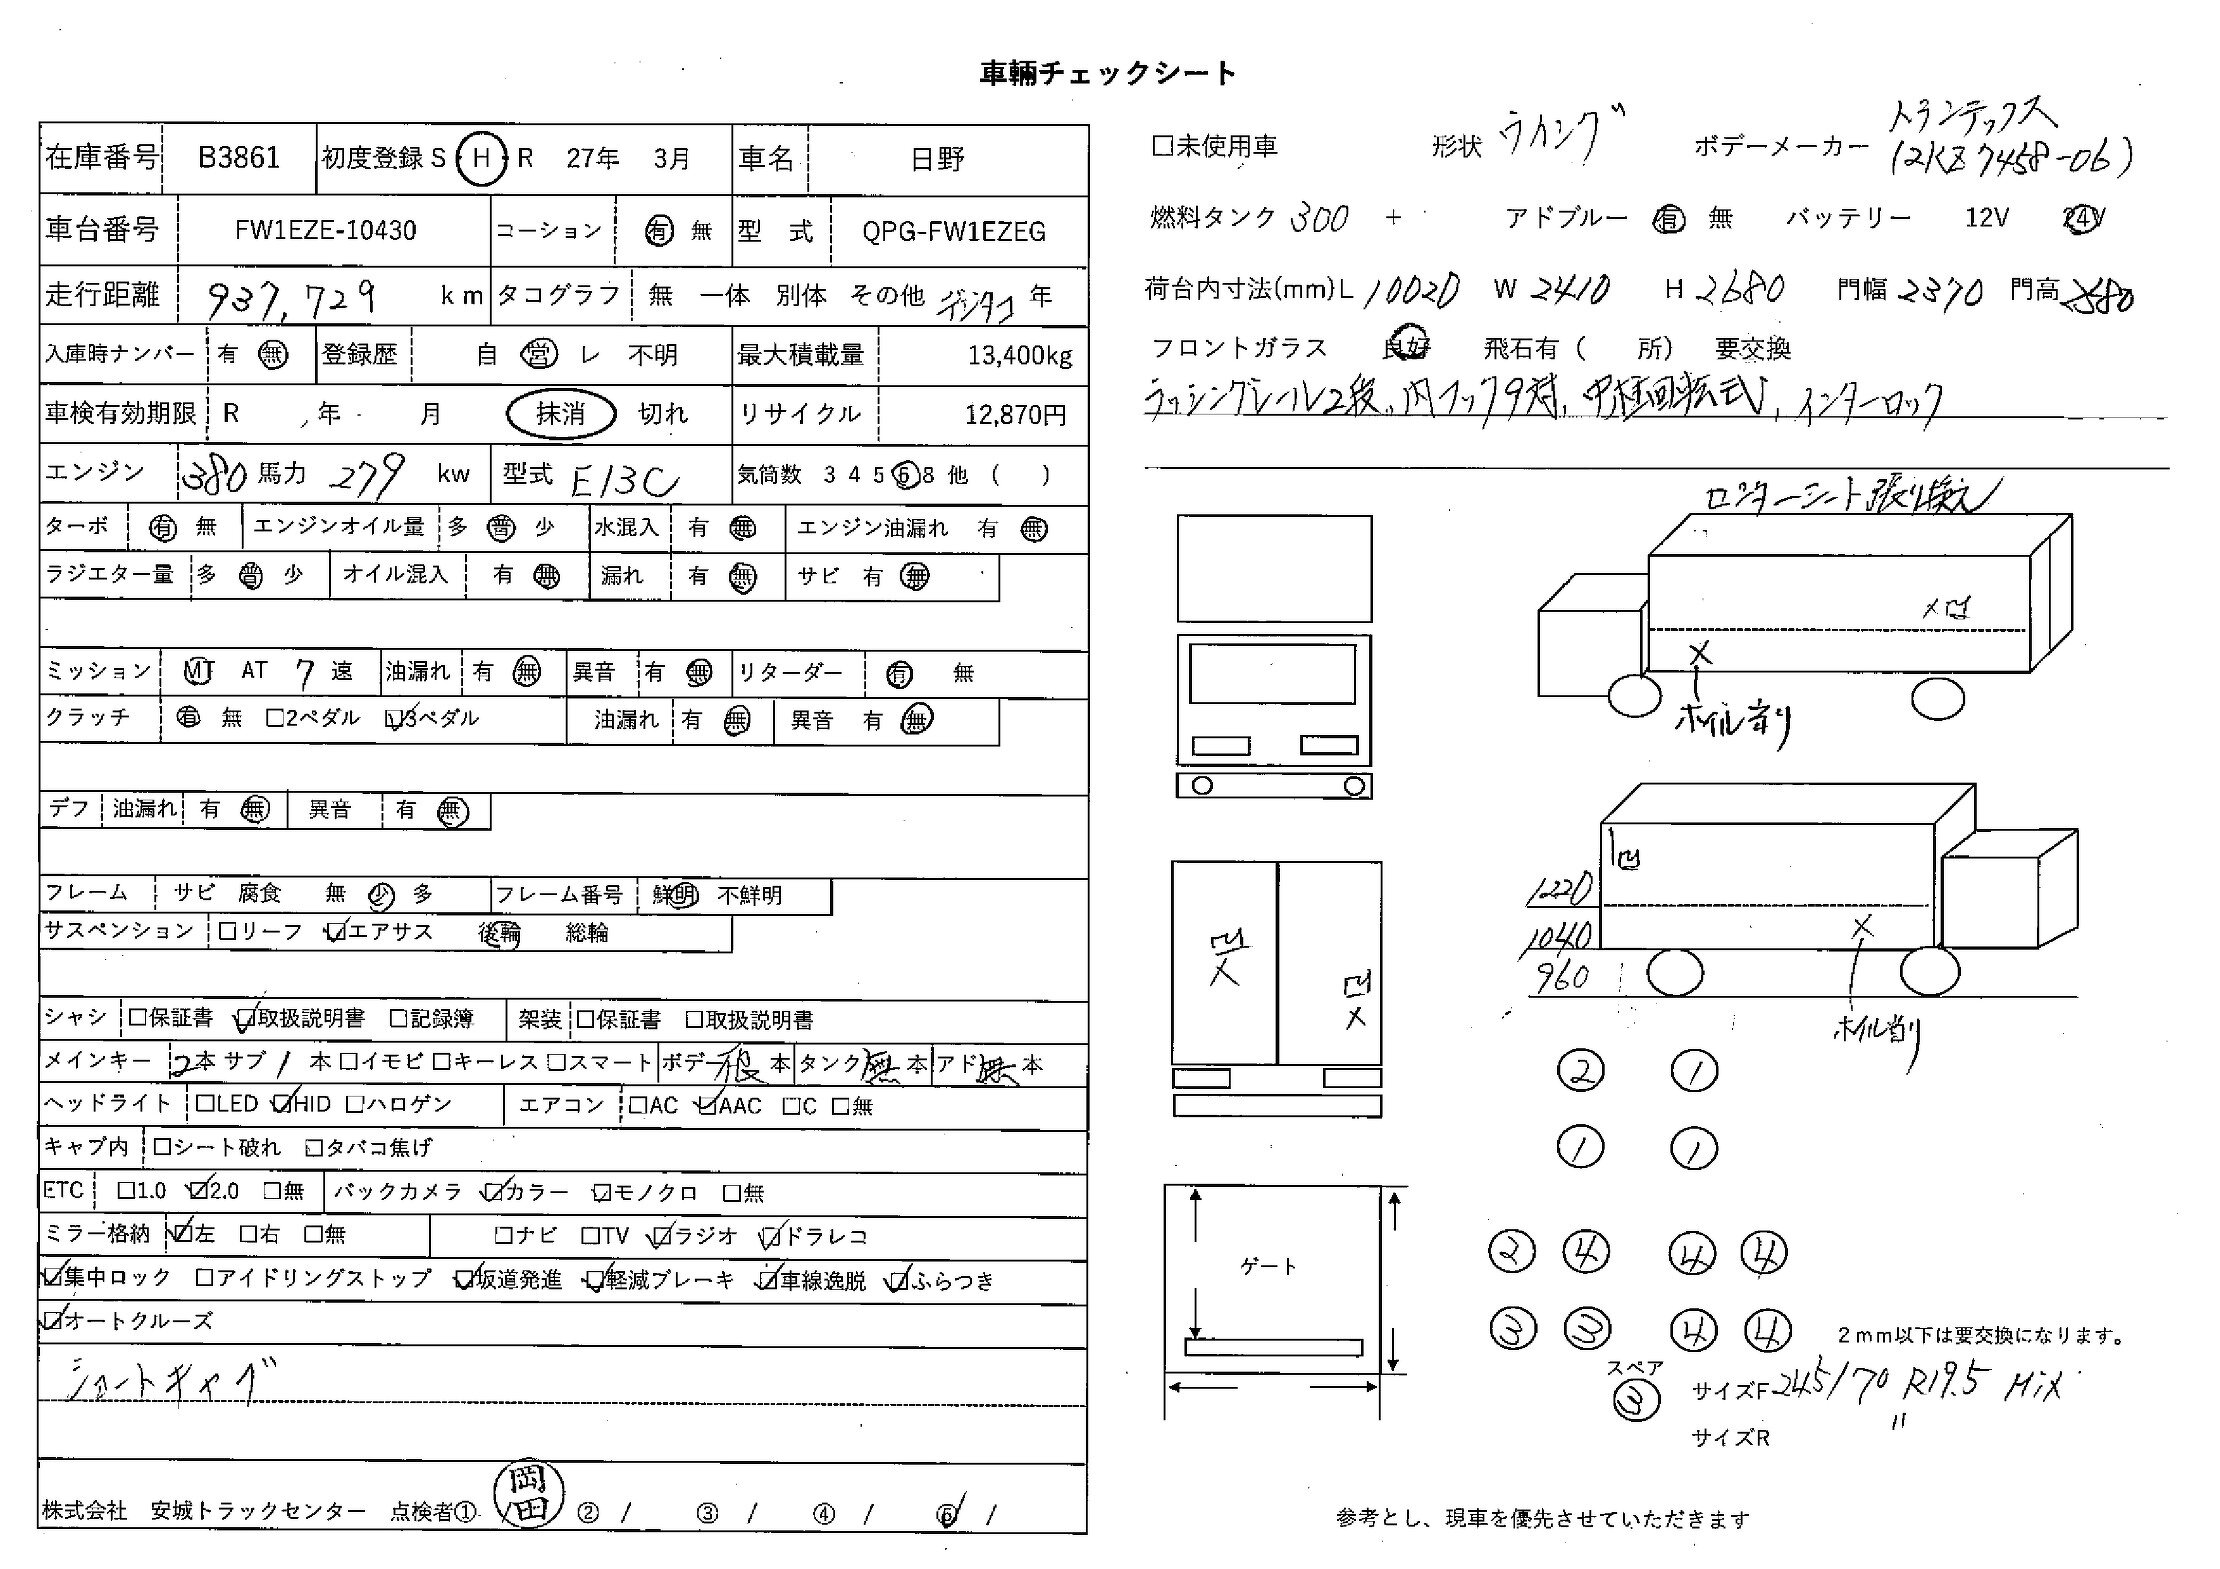 車輛チェックシート
在庫番号 B3861 初度登録 S H R 27年 3月 車名 日野
車台番号 FW1EZE-10430 コーション 有 無 型 式 QPG-FW1EZEG
走行距離 937,729 km タコグラフ 無 一体 別体 その他 デジタコ 年
入庫時ナンバー 有 無 登録歴 自 営 レ 不明 最大積載量 13,400kg
車検有効期限 R 年 月 抹消 切れ リサイクル 12,870円
エンジン 380 馬力 279 kw 型式 E13C 気筒数 3 4 5 6 8 他 ( )
ターボ 有 無 エンジンオイル量 多 普 少 水混入 有 無 エンジン油漏れ 有 無
ラジエター量 多 普 少 オイル混入 有 無 漏れ 有 無 サビ 有 無
ミッション MT AT 7 速 油漏れ 有 無 異音 有 無 リターダー 有 無
クラッチ 有 無 □2ペダル ☑3ペダル 油漏れ 有 無 異音 有 無
デフ 油漏れ 有 無 異音 有 無
フレーム サビ 腐食 無 少 多 フレーム番号 鮮明 不鮮明
サスペンション □リーフ ☑エアサス 後輪 総輪
シャシ □保証書 ☑取扱説明書 □記録簿 架装 □保証書 □取扱説明書
メインキー 2本 サブ 1 本 □イモビ □キーレス □スマート ボデー 本 タンク 無 本 アド 無 本
ヘッドライト □LED ☑HID □ハロゲン エアコン □AC ☑AAC □C □無
キャブ内 □シート破れ □タバコ焦げ
ETC □1.0 ☑2.0 □無 バックカメラ ☑カラー □モノクロ □無
ミラー格納 ☑左 □右 □無 □ナビ □TV ☑ラジオ ☑ドラレコ
☑集中ロック □アイドリングストップ ☑坂道発進 ☑軽減ブレーキ ☑車線逸脱 ☑ふらつき
☑オートクルーズ
ショートキャブ
株式会社 安城トラックセンター 点検者① / 岡田 ② / ③ / ④ / ⑤ /
□未使用車 形状 ウイング ボデーメーカー トランテックス
(2KZ7458-06)
燃料タンク 300 + アドブルー 有 無 バッテリー 12V 24V
荷台内寸法(mm)L 10020 W 2410 H 2680 門幅 2370 門高 2580
フロントガラス 良好 飛石有 ( 所) 要交換
ラッシングレール2段、内フック9対、中柱回転式、インターロック
センターシート張り換え
×凹
×
ホイル当り
凹
1220
1040
960
×
ホイル当り
凹
×
凹
×
② ①
① ①
② ④ ④ ④
③ ③ ④ ④
2mm以下は要交換になります。
スペア
③
サイズF 245/70 R19.5 Mix
サイズR 〃
ゲート
参考とし、現車を優先させていただきます